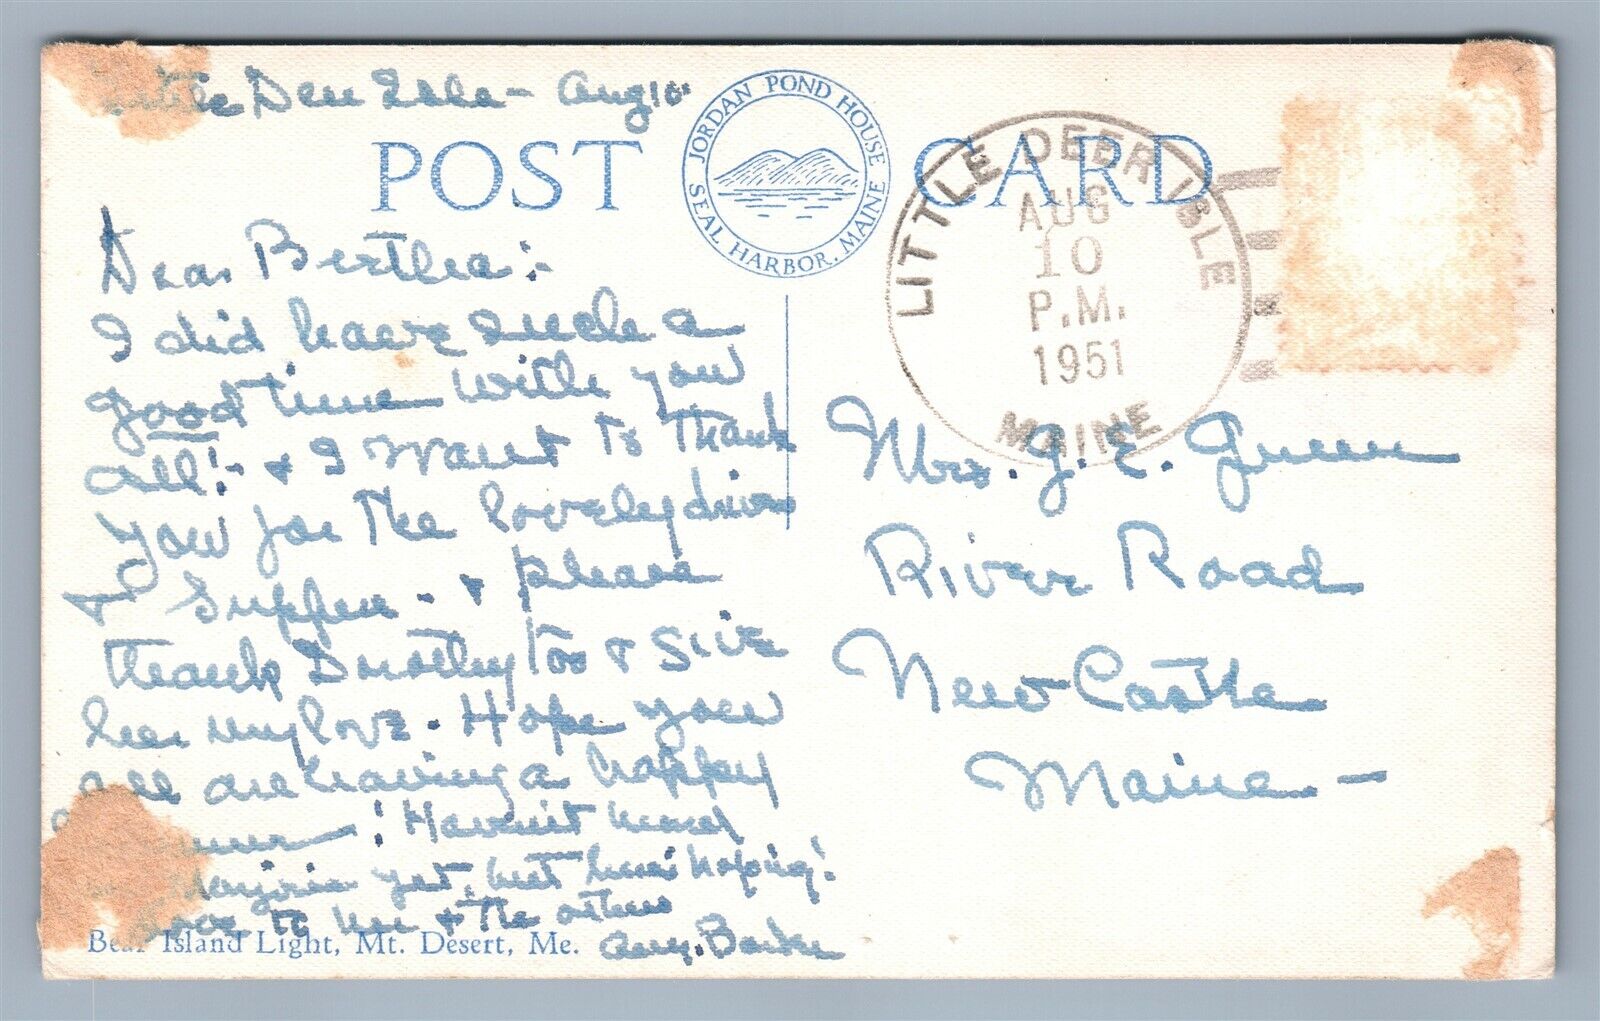 Little Deer Isle - Aug 10
POST CARD
JORDAN POND HOUSE
SEAL HARBOR, MAINE
LITTLE DEER ISLE
AUG
10
P.M.
1951
MAINE
Dear Bertha:-
I did have such a
good time with you
all!- & I want to thank
you for the lovely drive
& supper - & please
thank Dorothy too & give
her my love. Hope you
all are having a happy
summer! Haven't heard
Marjorie yet, but here's hoping!
Love to her & the others
Amy. Barker
Mrs. J. E. Green
River Road
New Castle
Maine -
Bear Island Light, Mt. Desert, Me.